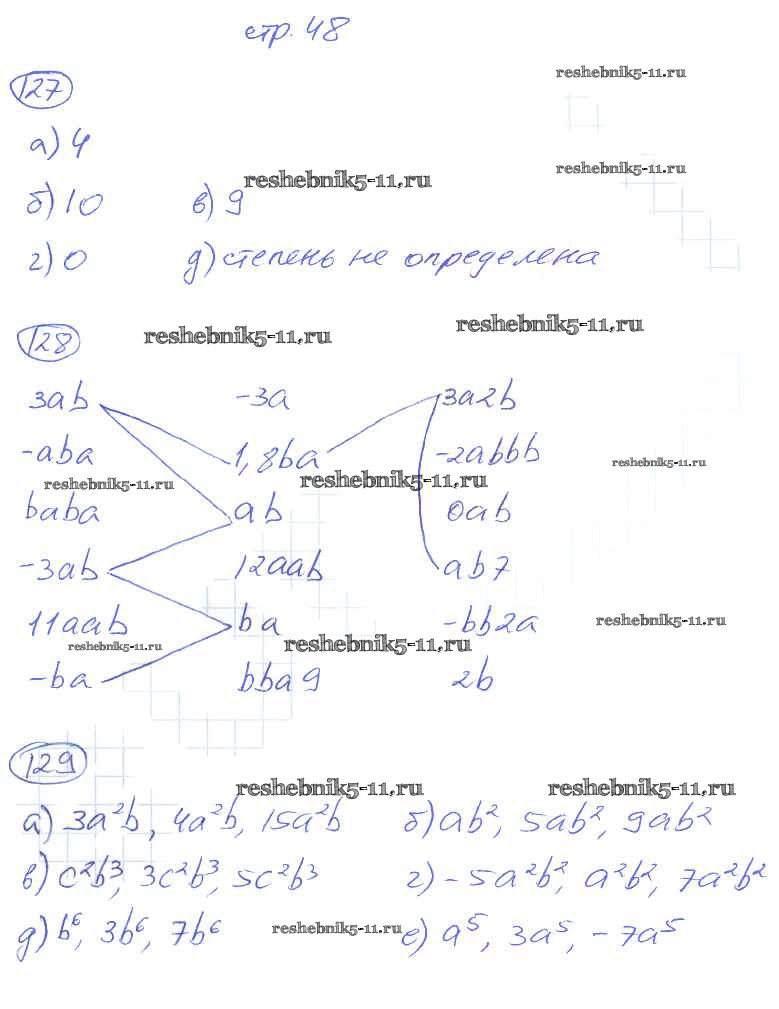 стр. 48
127
reshebnik5-11.ru
а) 4
reshebnik5-11.ru
reshebnik5-11.ru
б) 10 в) 9
г) 0 д) степень не определена
128
reshebnik5-11.ru
reshebnik5-11.ru
3ab -3a 3a2b
-aba 1,8ba -2abbb
reshebnik5-11.ru
reshebnik5-11.ru
reshebnik5-11.ru
baba ab 0ab
-3ab 12aab ab7
11aab ba -bb2a
reshebnik5-11.ru
reshebnik5-11.ru
reshebnik5-11.ru
-ba bba9 2b
129
reshebnik5-11.ru
reshebnik5-11.ru
а) 3a²b, 4a²b, 15a²b б) ab², 5ab², 9ab²
в) c²b³, 3c²b³, 5c²b³ г) -5a²b², a²b², 7a²b²
д) b⁶, 3b⁶, 7b⁶ е) a⁵, 3a⁵, -7a⁵
reshebnik5-11.ru